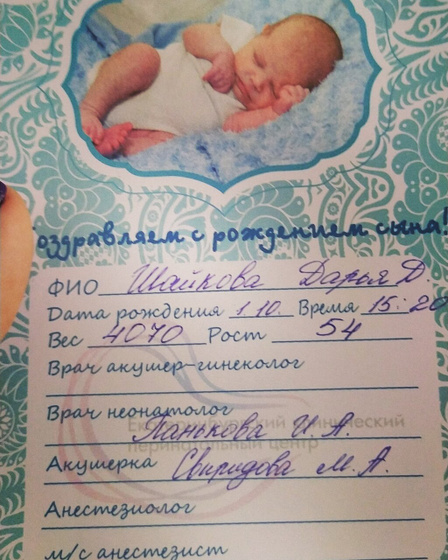 оздравляем с рождением сына!
ФИО Шайкова Дарья Д.
Дата рождения 1.10. Время 15:20
Вес 4070 Рост 54
Врач акушер-гинеколог
Врач неонатолог
Екатеринбургский клинический
Панькова И.А.
перинатальный центр
Акушерка Свиридова М.А.
Анестезиолог
м/с анестезист